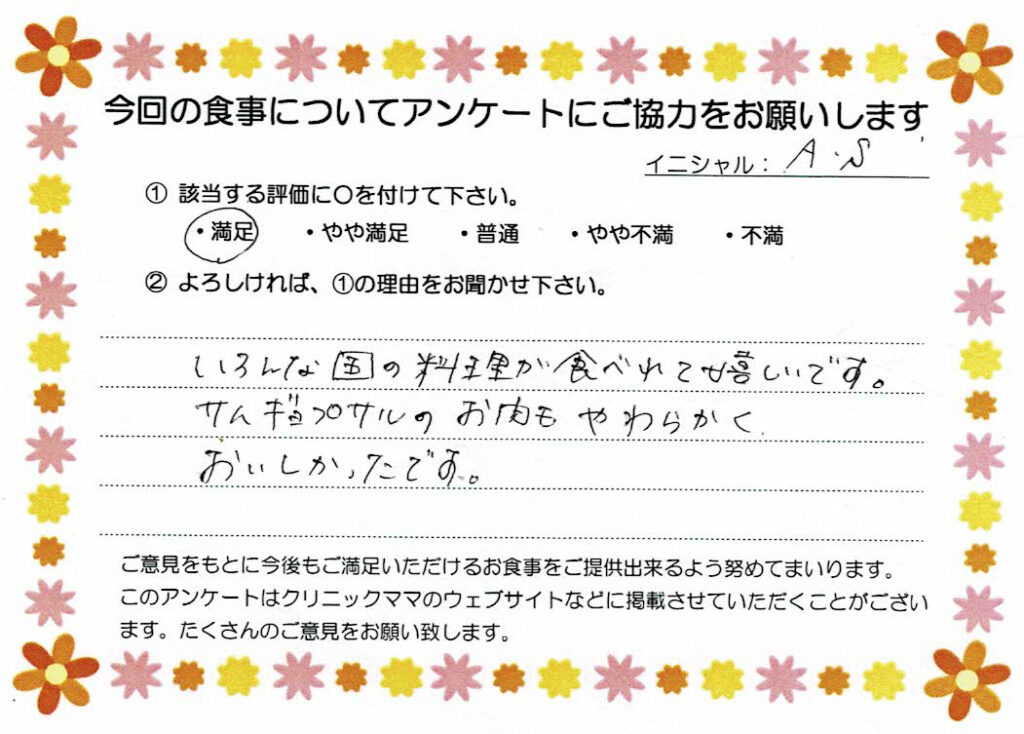 今回の食事についてアンケートにご協力をお願いします
イニシャル： A.S
① 該当する評価に○を付けて下さい。
・満足 ・やや満足 ・普通 ・やや不満 ・不満
② よろしければ、①の理由をお聞かせ下さい。
いろんな国の料理が食べれて嬉しいです。
サムギョプサルのお肉もやわらかく
おいしかったです。
ご意見をもとに今後もご満足いただけるお食事をご提供出来るよう努めてまいります。
このアンケートはクリニックママのウェブサイトなどに掲載させていただくことがござい
ます。たくさんのご意見をお願い致します。